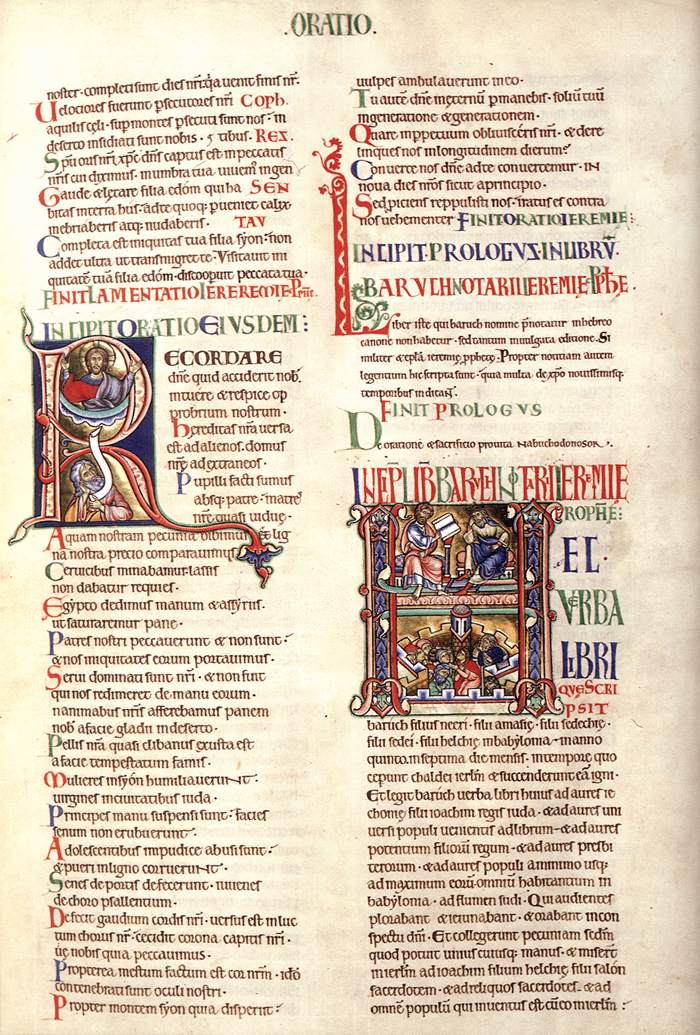 .ORATIO.
noster· completi sunt dies nr̄i· q̄a uenit finis nr̄.
Velociores fuerunt p̄secutores nr̄i Coph.
aquilis cęli· sup montes p̄secuti sunt nos· in
deserto insidiati sunt nobis· Res.
Sp̄s oris nr̄i xp̄c dn̄s captus est in peccatis
nr̄is cui diximus· in umbra tua uiuem̄ in gen
Gaude & lętare filia edóm quę ha SEN
bitas in terra hus· ad te quoq; p̄ueniet calyx·
inebriaberis atq; nudaberis· TAV
Completa est iniquitas tua filia syon· non
addet ultra ut transmigret te· Visitauit ini
quitatē tuā filia edóm· discoop̄uit peccata tua·
FINIT LAMENTATIO IEREMIE
INCIPIT ORATIO EIVSDEM:
RECORDARE
dn̄e quid acciderit nob̄·
intuere & respice op
probrium nostrum·
Hereditas nr̄a uersa
est ad alienos· domus
nr̄ę ad extraneos·
Pupilli facti sumus
absq; patre· matres
nr̄ę quasi uiduę·
Aquam nostram pecunia bibimus· & lig
na nostra precio comparauimus·
Ceruicibus minabamur· lassis
non dabatur requies·
Egypto dedimus manum & assyriis·
ut saturaremur pane·
Patres nostri peccauerunt & non sunt·
& nos iniquitates eorum portauimus·
Serui dominati sunt nr̄i· & non fuit
qui nos redimeret de manu eorum·
In animabus nr̄is afferebamus panem
nob̄ a facie gladii in deserto·
Pellis nr̄a quasi clibanus exusta est
a facie tempestatum famis·
Mulieres in syón humiliauerunt·
uirgines in ciuitatibus iuda·
Principes manu suspensi sunt· facies
senum non erubuerunt·
Adolescentibus impudice abusi sunt·
& pueri in ligno corruerunt·
Senes de portis defecerunt· iuuenes
de choro psallentium·
Defecit gaudium cordis nr̄i· uersus est in luc
tum chorus nr̄· cecidit corona capitis nr̄i·
uę nobis quia peccauimus·
Propterea mestum factum est cor nr̄m· ideo
contenebrati sunt oculi nostri·
Propter montem syon quia disperiit·
uulpes ambulauerunt in eo·
Tu autē dn̄e in ęternum p̄manebis· soliū tuū
in generatione & generationem·
Quare in ppetuum obliuisceris nr̄i· & dere
linques nos in longitudinem dierum?
Conuerte nos dn̄e ad te & conuertemur· IN
noua dies nr̄os sicut a principio·
Sed piciens reppulisti nos· iratus es contra
nos uehementer FINIT ORATIO IEREMIE:
INCIPIT· PROLOGVS· IN LIBRV̄·
BARVCH NOTARII IEREMIE PPHE.
Liber iste qui baruch nomine p̄notatur in hebreo
canone non habetur· sed tantum in uulgata editione· Si
militer & ep̄la ieremię pphetę· Propter notitiam autem
legentium hic scripta sunt· quia multa de xp̄o nouissimisq;
temporibus indicant·
FINIT PROLOGVS
De oratione & sacrificio pro uita Nabuchodonosor·
INCP̄ LIB̄ BARVCH NOTARII IEREMIE
PROPHE:
ET
HEC
VERBA
LIBRI
QVE SCRI
PSIT
baruch filius neeri· filii amasię· filii sedechię·
filii sedei· filii helchię in babylonia· in anno
quinto· in septima die mensis· in tempore quo
ceperunt chaldei ierl̄m & succenderunt eā igni·
Et legit baruch uerba libri huius ad aures ie
chonię filii ioachim regis iuda· & ad aures uni
uersi populi uenientis ad librum· & ad aures
potentium filiorū regum· & ad aures presbi
terorum· & ad aures populi a minimo usq;
ad maximum eorū omniū habitantium in
babylonia· ad flumen sudi· Qui audientes
plorabant & ieiunabant· & orabant in con
spectu dn̄i· Et collegerunt pecuniam sedm̄
quod potuit unius cuiusq; manus· & misert̄
in ierl̄m ad ioachim filium helchię filii salón
sacerdotem· & ad reliquos sacerdotes· & ad
omnē populū qui inuentus est cū eo in ierl̄m: